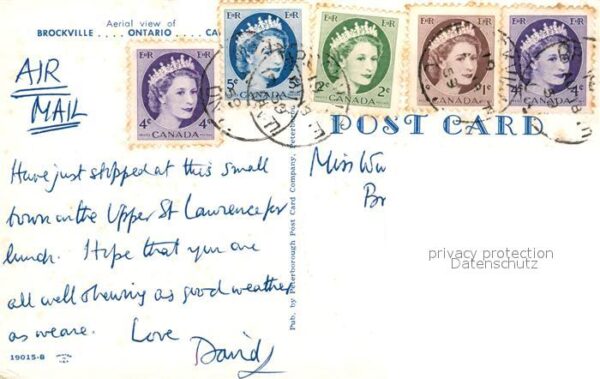 Aerial view of
BROCKVILLE .... ONTARIO .... CA
AIR
MAIL
E R E R
4c CANADA 4c
E R E R
5c CANADA
E R E R
CANADA 2c
E R E R
CANADA 1c
E R E R
CANADA 4c
POST CARD
Have just stopped at this small
town on the Upper St Lawrence for
lunch. Hope that you are
all well & having as good weather
as we are. Love
David
19015-B
Pub. by Peterborough Post Card Company, Peterborough
Miss
Br
privacy protection
Datenschutz